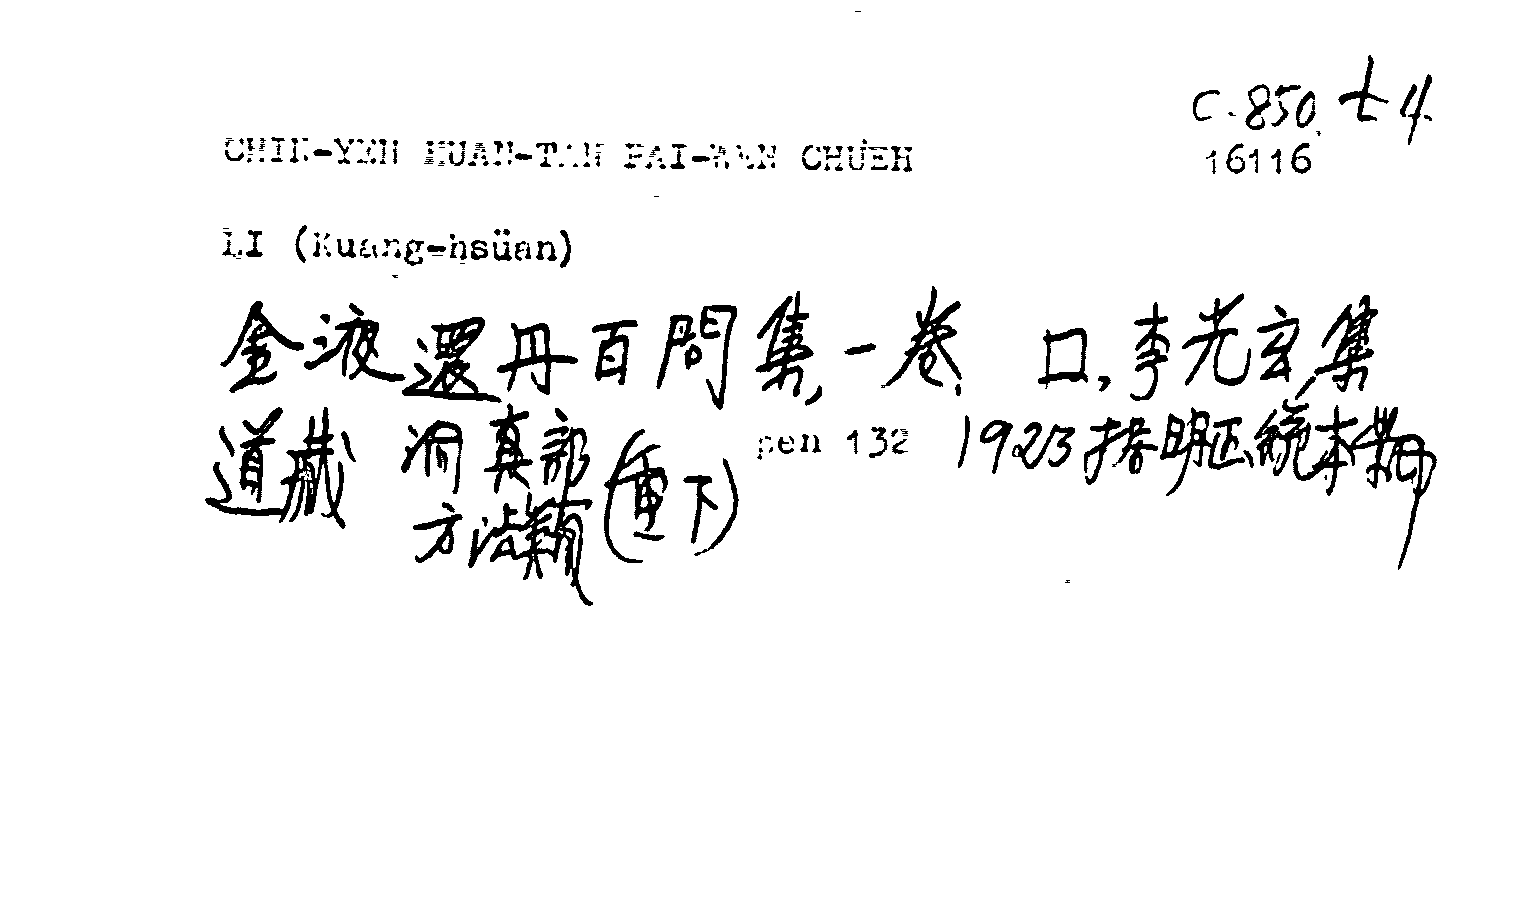 C.850. 七4
CHIN-YEH HUAN-TAN PAI-WEN CHÜEH 16116
LI (Kuang-hsüan)
金液還丹百問集, 一卷. 口, 李光玄, 集
道藏 洞真部 方法類 (重下) pen 132 1923 撘明正統本景印